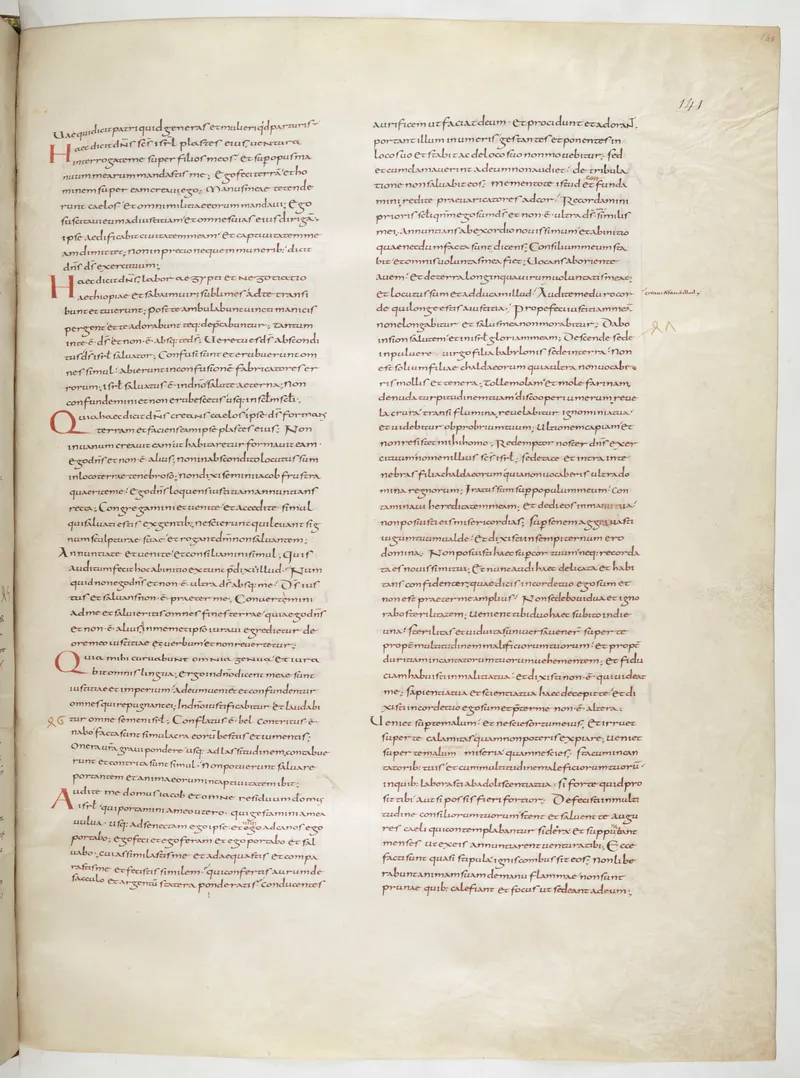 141
Uae qui dicit patri quid generas et mulieri qd parturis
Haec dicit dns scs isrl plastes eius uentura
interrogate me super filios meos et super opus ma
nuum mearum mandastis me; Ego feci terra et ho
minem super eam creaui ego; Manus meae tetende
runt caelos et omni militiae eorum mandaui; Ego
suscitaui eum ad iustitiam et omnes uias eius dirigam
ipse aedificabit ciuitatem meam et captiuitatem me
am dimittet; non in precio neque in munerib; dicit
dns ds exercituum;
Haec dicit dns; labor aegypti et negotiatio
aethiopiae et sabaim uiri sublimes ad te transi
bunt et tui erunt; post te ambulabunt uincti manicis
pergent et te adorabunt teq; depcabuntur; tantum
in te e ds et non e absq; te ds; Uere tu es ds abscondi
tus ds isrl saluator; Confusi sunt et erubuerunt om
nes simul abierunt in confusione fabricatores er
rorum; isrl saluatus e in dno salute aeterna; Non
confundemini et non erubescetis usq; in sclm scli;
Quia haec dicit dns creans caelos ipse ds formans
terram et faciens eam ipse plastes eius; Non
in uanum creauit eam ut habitaretur formauit eam
ego dns et non e alius; non in abscondito locutus sum
in loco terrae tenebroso; non dixi semini iacob frustra
quaerite me; Ego dns loquens iustitiam annuntians
recta; Congregamini et uenite et accedite simul
qui saluati estis ex gentib; nescierunt qui leuant sig
num sculpturae suae et rogant dm non saluantem;
Annuntiate et uenite et consiliamini simul; quis
auditum fecit hoc ab initio ex tunc pdixit illud; Num
quid non ego dns et non e ultra ds absq; me; Ds ius
tus et saluans non e praeter me; Conuertimini
ad me et salui eritis omnes fines terrae quia ego dns
et non e alius; in memet ipso iuraui egredietur de
ore meo iustitiae et uerbum et non reuertetur;
Quia mihi curuabunt omnia genua et iura
bit omnis lingua; ergo in dno dicent meae sunt
iustitiae et imperium ad eum uenient et confundentur
omnes qui repugnant ei; In dno iustificabitur et laudabi
tur omne semen isrl; Conflatus e bel contritus e
nabo facta sunt simulacra eoru bestiis et iumentis;
Onera ura graui pondere usq; ad lassitudinem contabue
runt et contrita sunt simul non potuerunt saluare
portantem et anima eorum in captiuitatem ibit;
Audite me domus iacob et omne residuum domus
isrl qui portamini a meo utero qui gestamini a mea
uulua usq; ad senectam ego ipse et usq; ad canos ego
portabo; ego feci et ego feram et ego portabo et sal
uabo; cui assimilastis me et adaequastis et compa
rastis me et fecistis similem qui confertis aurum de
sacculo et argentu statera ponderatis conducentes
aurificem ut faciat deum et procidunt et adorant
portant illum in umeris gestantes et ponentes in
loco suo et stabit ac de loco suo non mouebitur; sed
et cum clamauerint ad eum non audiet de tribula
tione non saluabit eos; mementote istud et funda
mini redite praeuaricatores ad cor; Recordamini
prioris scli qnm ego sum ds et non e ultra ds nec similis
mei; Annuntians ab exordio nouissimum et ab initio
quae necdum facta sunt dicens; Consilium meum sta
bit et omnis uoluntas mea fiet; Uocans ab oriente
auem et de terra longinqua uirum uoluntatis meae;
et locutus sum et adducam illud; Audite me duro cor
creaui et faciam illud
de qui longe estis a iustitia; Prope feci iustitiam mea
non elongabitur et salus mea non morabitur; Dabo
in sion salutem et in isrl gloriam meam; Descende sede
in puluere uirgo filia babylonis sede in terra Non
est solium filiae chaldaeorum quia ultra non uocabe
ris mollis et tenera; tolle molam et mole farinam;
denuda turpitudinem tuam discooperi umerum reue
la crura transi flumina; reuelabitur ignominia tua
et uidebitur obprobrium tuum; Ultionem capiam et
non resistet mihi homo; Redemptor noster dns exer
cituum nomen illius scs isrl; sede tace et intra in te
nebras filia chaldaeorum quia non uocaberis ultra do
mina regnorum; Iratus sum sup populum meum con
taminaui hereditatem meam; et dedi eos in manu tua
non posuisti eis misericordias; sup senem aggrauasti
iugum tuum ualde et dixisti in sempiternum ero
domina; Non posuisti haec sup cor tuum neq; recorda
ta es nouissimi tui; et nunc audi haec delicata et habi
tans confidenter quae dicis in corde tuo ego sum et
non est praeter me amplius; Non sedebo uidua et igno
rabo sterilitatem; Uenient tibi duo haec subito in die
una sterilitas et uiduitas uniuersa uenerunt super te
propt multitudinem maleficiorum tuorum et propt
duritiam incantatorum tuorum uehementem; et fidu
ciam habuisti in malitia tua et dixisti non e qui uideat
me; sapientia tua et scientia tua haec decepit te et di
xisti in corde tuo ego sum et pter me non e altera;
Ueniet sup te malum et nescies ortum eius; et irruet
super te calamitas quam non poteris expiare; ueniet
super te malum miseria quam nescies; sta cum incan
tatorib; tuis et cum multitudine maleficiorum tuoru
in quib; laborasti ab adolescentia tua si forte quid pro
sit tibi aut si possis fieri fortior; Defecisti in multi
tudine consiliorum tuorum stent et saluent te augu
res caeli qui contemplabantur sidera et supputabant
menses ut ex eis annuntiarent uentura tibi; Ecce
facti sunt quasi stipula ignis combussit eos; non libe
rabunt animam suam de manu flammae non sunt
prunae quib; calefiant et focus ut sedeant ad eum;